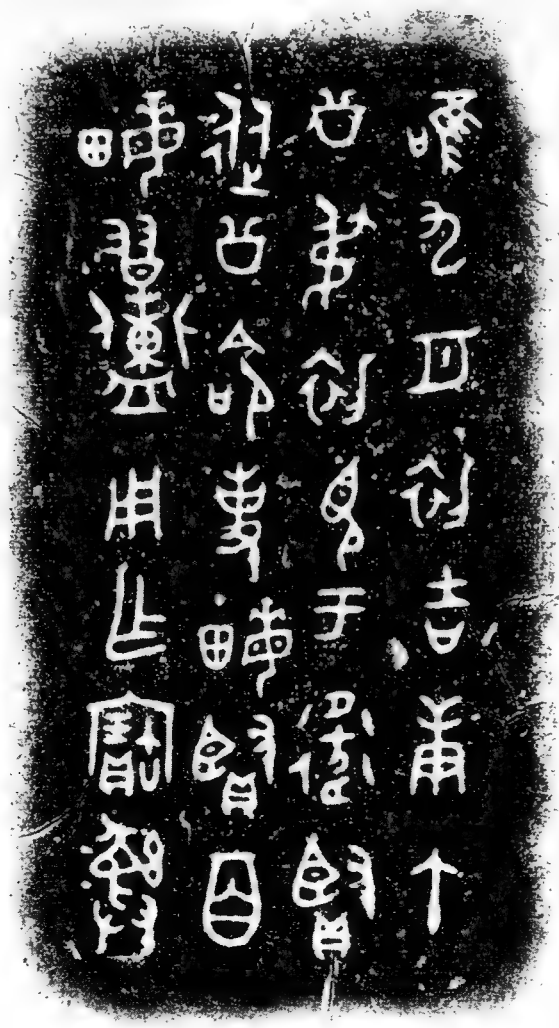 唯九月初吉庚午
公叔初見于衛賢
從公命事畮賢百
畮用乍寶彝